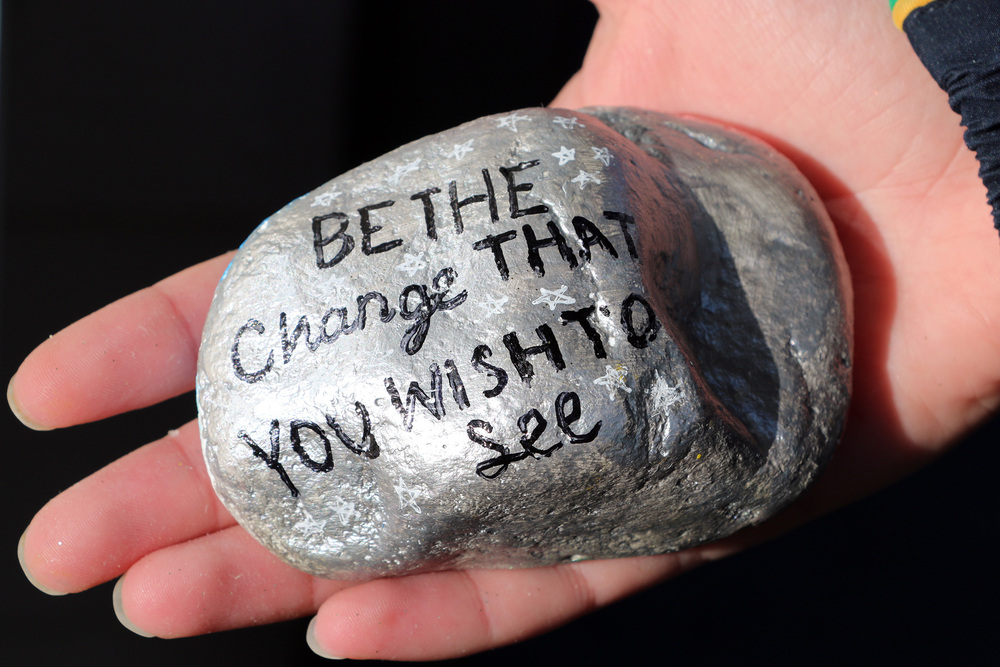 BE THE
Change THAT
YOU WISH TO
see